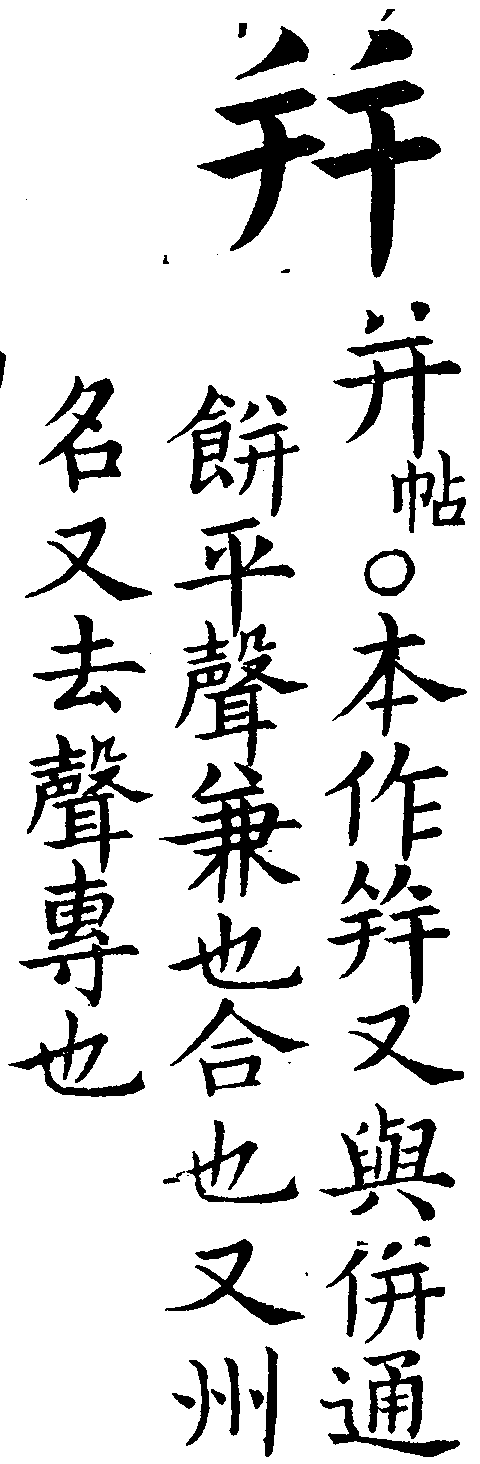 幷
并帖○本作幷又與併通
餅平聲兼也合也又州
名又去聲專也